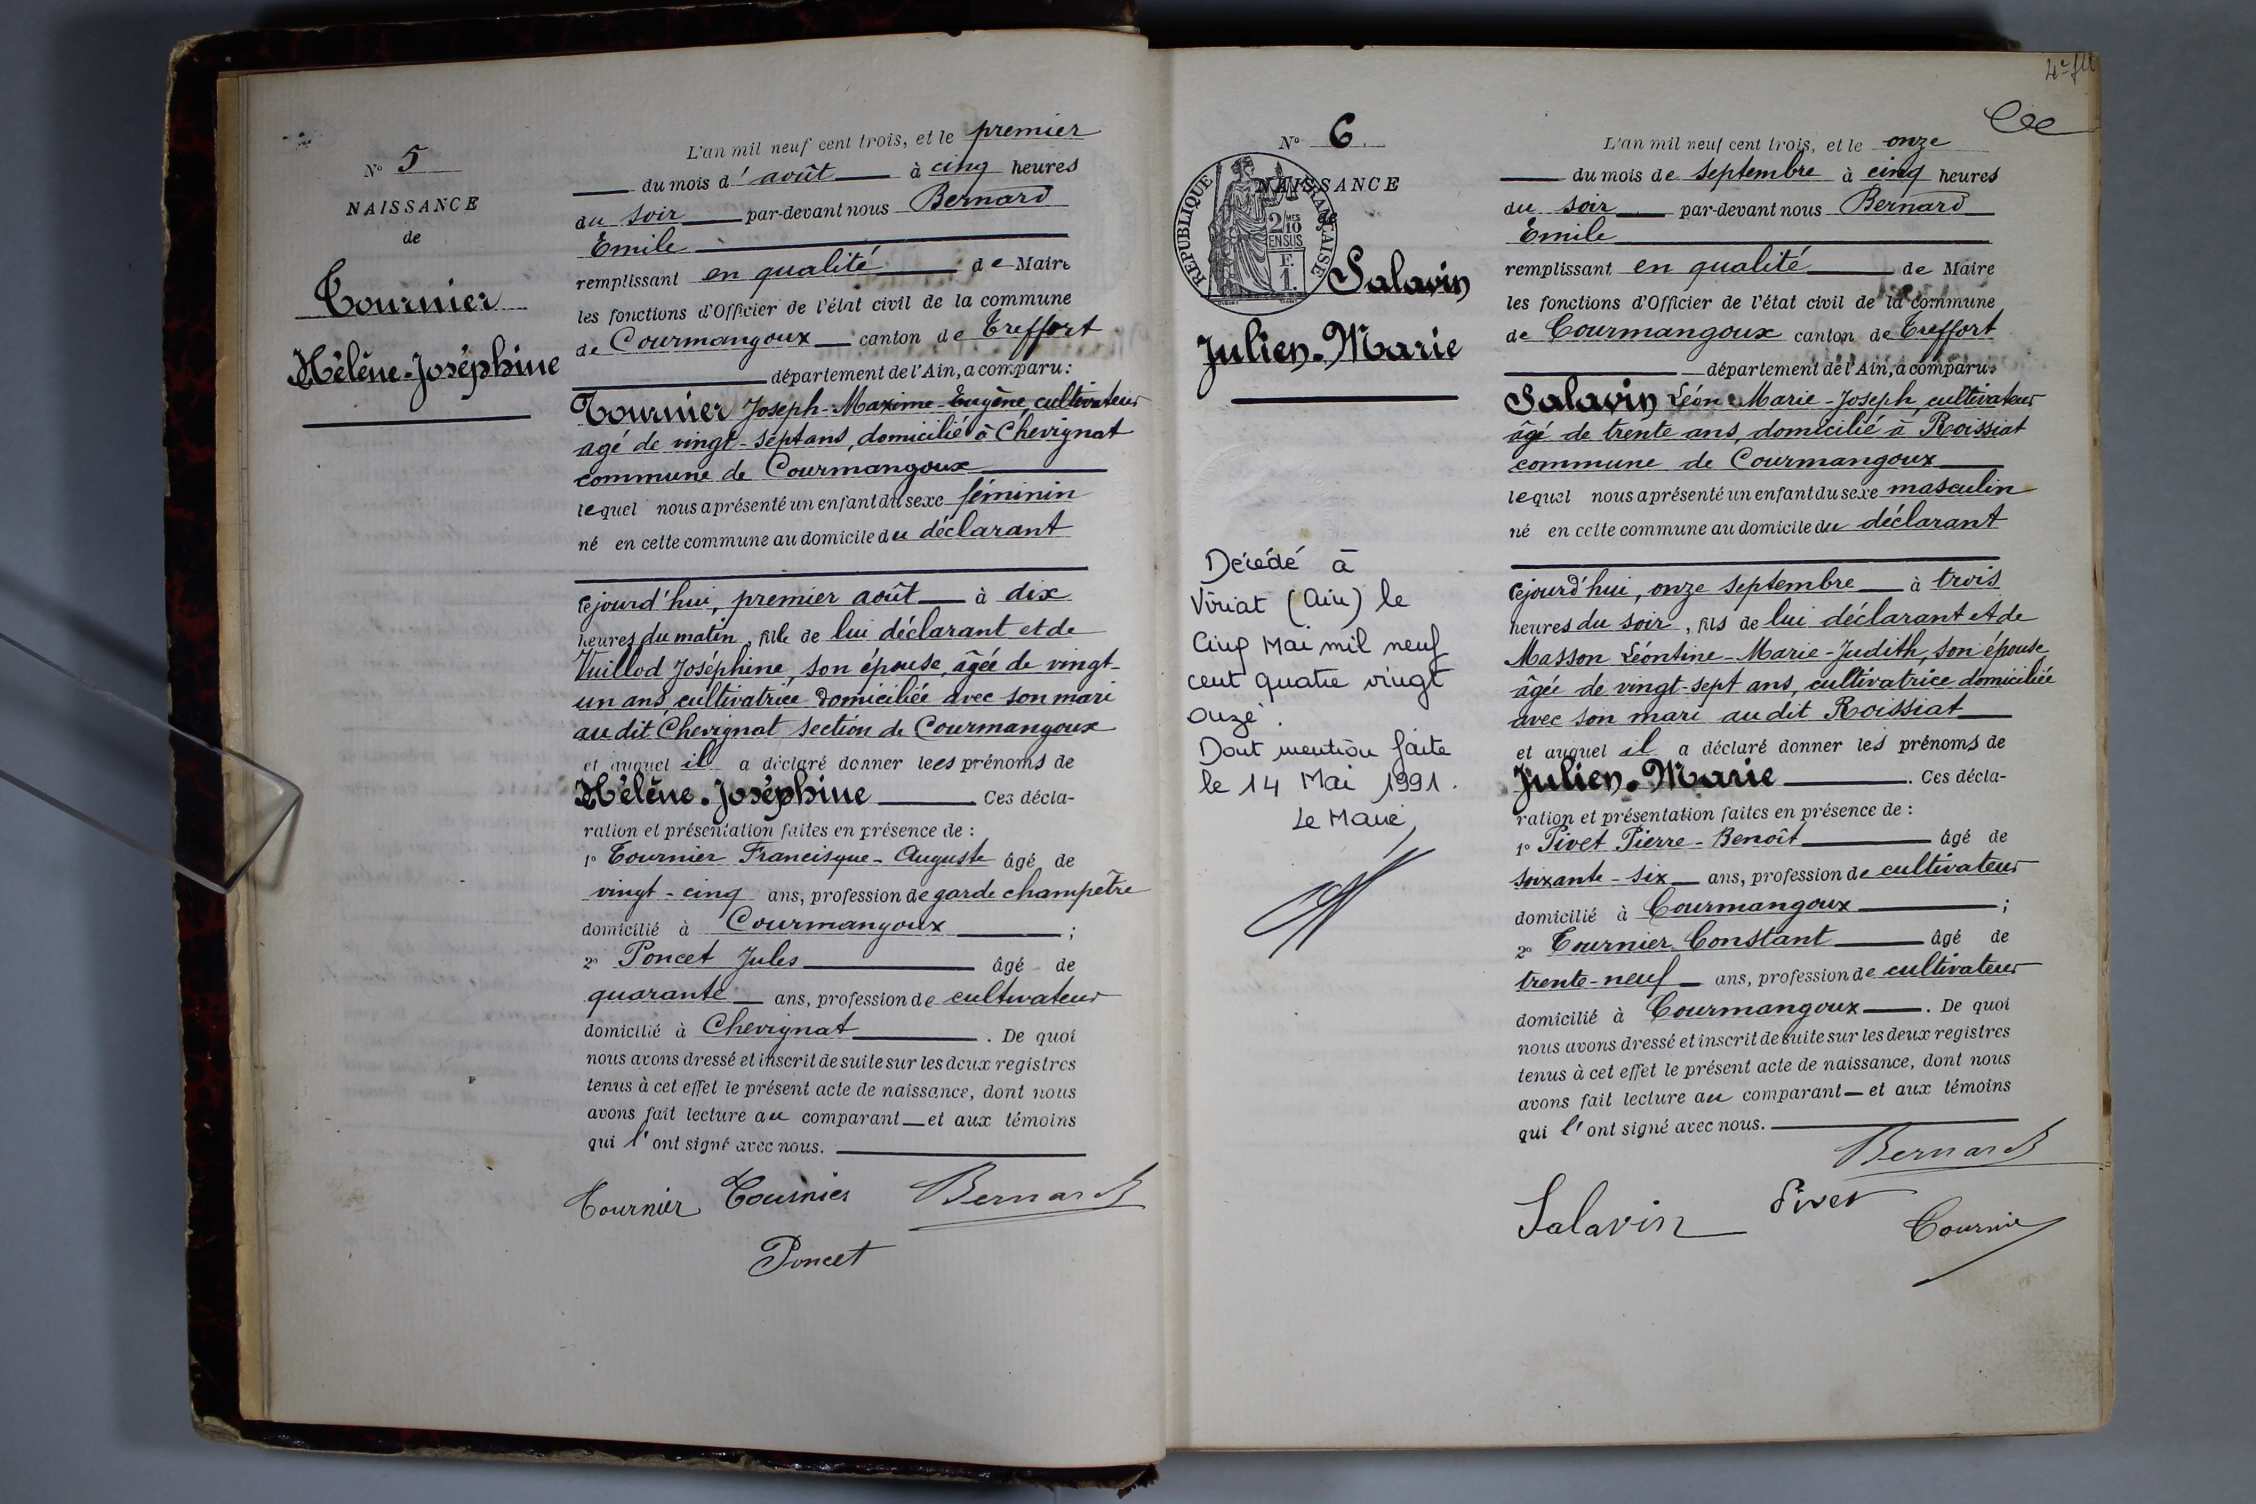 N° 5
NAISSANCE
de
Tournier
Hélène-Joséphine
L'an mil neuf cent trois, et le premier
du mois d'août à cinq heures
du soir par-devant nous Bernard
Emile
remplissant en qualité de Maire
les fonctions d'Officier de l'état civil de la commune
de Courmangoux canton de Treffort
département de l'Ain, a comparu:
Tournier Joseph-Maxime-Eugène, cultivateur
âgé de vingt-sept ans, domicilié à Chevignat
commune de Courmangoux
lequel nous a présenté un enfant du sexe féminin
né en cette commune au domicile du déclarant
cejourd'hui, premier août à dix
heures du matin, fille de lui déclarant et de
Vuillod Joséphine, son épouse, âgée de vingt-
un ans, cultivatrice domiciliée avec son mari
au dit Chevignat section de Courmangoux
et auquel il a déclaré donner les prénoms de
Hélène-Joséphine Ces décla-
ration et présentation faites en présence de :
1° Tournier Francisque-Auguste âgé de
vingt-cinq ans, profession de garde champêtre
domicilié à Courmangoux ;
2° Poncet Jules âgé de
quarante ans, profession de cultivateur
domicilié à Chevignat . De quoi
nous avons dressé et inscrit de suite sur les deux registres
tenus à cet effet le présent acte de naissance, dont nous
avons fait lecture au comparant et aux témoins
qui l'ont signé avec nous.
Tournier Tournier Bernard
Poncet
4e fll
N° 6
NAISSANCE
de
RÉPUBLIQUE FRANÇAISE
2/10 MES
EN SUS
F.
1.
Salavin
Julien-Marie
Décédé à
Viriat (Ain) le
Cinq Mai mil neuf
cent quatre vingt
onze.
Dont mention faite
le 14 Mai 1991.
Le Maire,
L'an mil neuf cent trois, et le onze
du mois de septembre à cinq heures
du soir par-devant nous Bernard
Emile
remplissant en qualité de Maire
les fonctions d'Officier de l'état civil de la commune
de Courmangoux canton de Treffort
département de l'Ain, a comparu:
Salavin Léon-Marie-Joseph, cultivateur
âgé de trente ans, domicilié à Roissiat
commune de Courmangoux
lequel nous a présenté un enfant du sexe masculin
né en cette commune au domicile du déclarant
cejourd'hui, onze septembre à trois
heures du soir, fils de lui déclarant et de
Masson Léontine-Marie-Judith, son épouse
âgée de vingt-sept ans, cultivatrice domiciliée
avec son mari au dit Roissiat
et auquel il a déclaré donner les prénoms de
Julien-Marie . Ces décla-
ration et présentation faites en présence de :
1° Pivet Pierre-Benoît âgé de
soixante-six ans, profession de cultivateur
domicilié à Courmangoux ;
2° Tournier Constant âgé de
trente-neuf ans, profession de cultivateur
domicilié à Courmangoux . De quoi
nous avons dressé et inscrit de suite sur les deux registres
tenus à cet effet le présent acte de naissance, dont nous
avons fait lecture au comparant et aux témoins
qui l'ont signé avec nous.
Bernard
Salavin Pivet Tournier